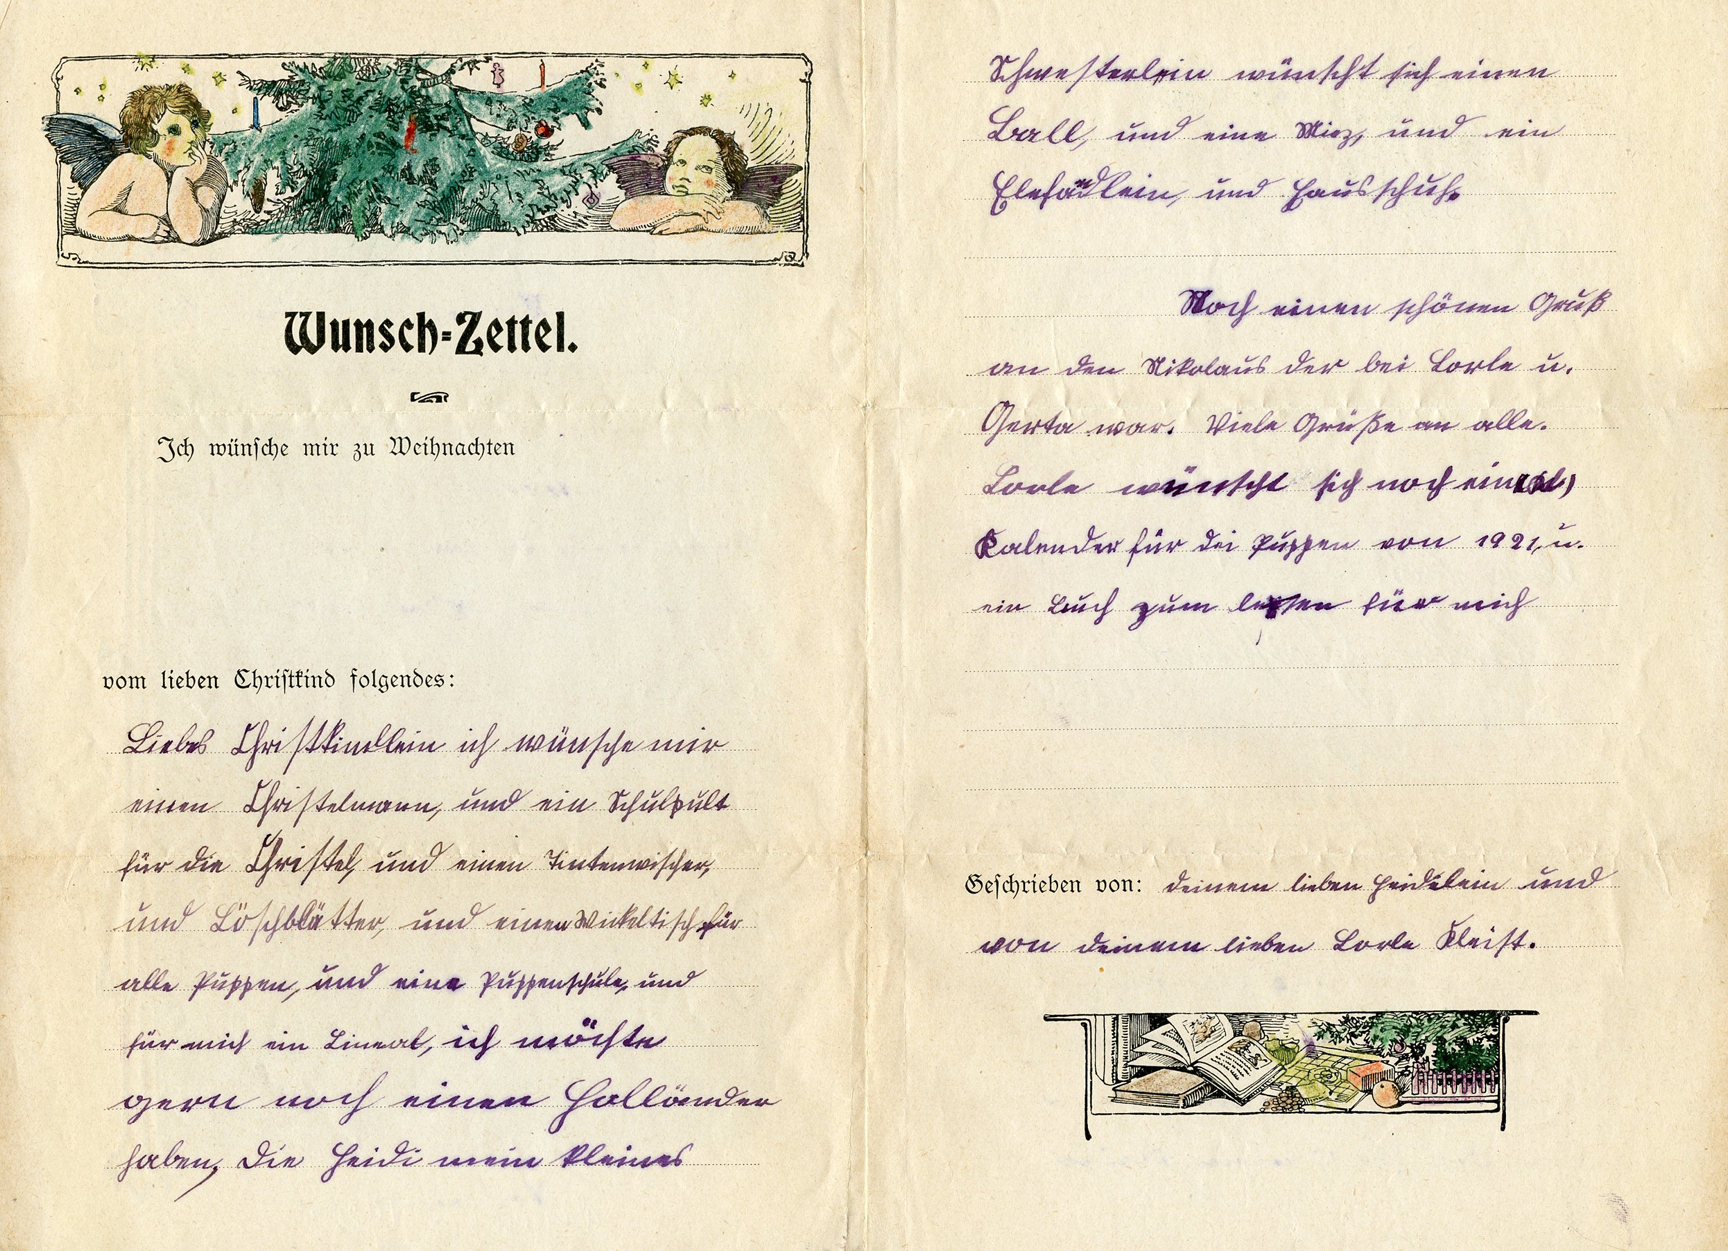 Wunsch-Zettel.
Ich wünsche mir zu Weihnachten
vom lieben Christkind folgendes:
Liebes Christkindlein ich wünsche mir
einen Christelmann, und ein Schulpult
für die Christel, und einen Tintenwischer,
und Löschblätter, und einen Wickeltisch für
alle Puppen, und eine Puppenschule, und
für mich ein Lineal, ich möchte
gern noch einen Holländer
haben, Die Heidi mein kleines
Schwesterlein wünscht sich einen
Ball, und eine Miez, und ein
Elefäntlein, und Hausschuh.
Noch einen schönen Gruß
an den Nikolaus der bei Lorle u.
Gerta war. Viele Grüße an alle.
Lorle wünscht sich noch ein
Kalender für dei Puppen von 1921, u.
ein Buch zum lesen für mich
Geschrieben von: deinem lieben Heidelein und
von deinem lieben Lorle Kleist.